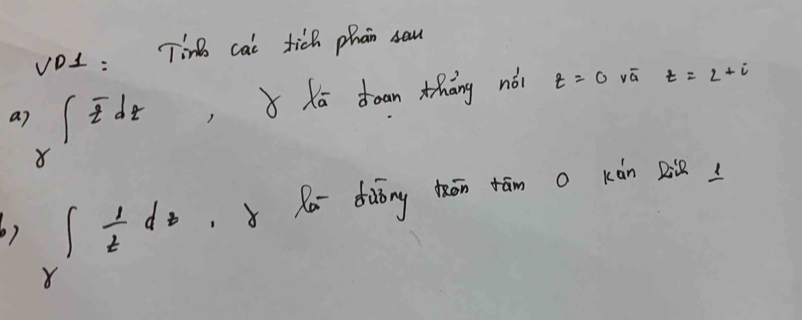 VD1: Tính các tích phân sau
a) ∫γ z̄ dz , γ là đoạn thẳng nối z = 0 và z = 2 + i
b) ∫γ 1/z dz , γ là đường tròn tâm O bán kính 1